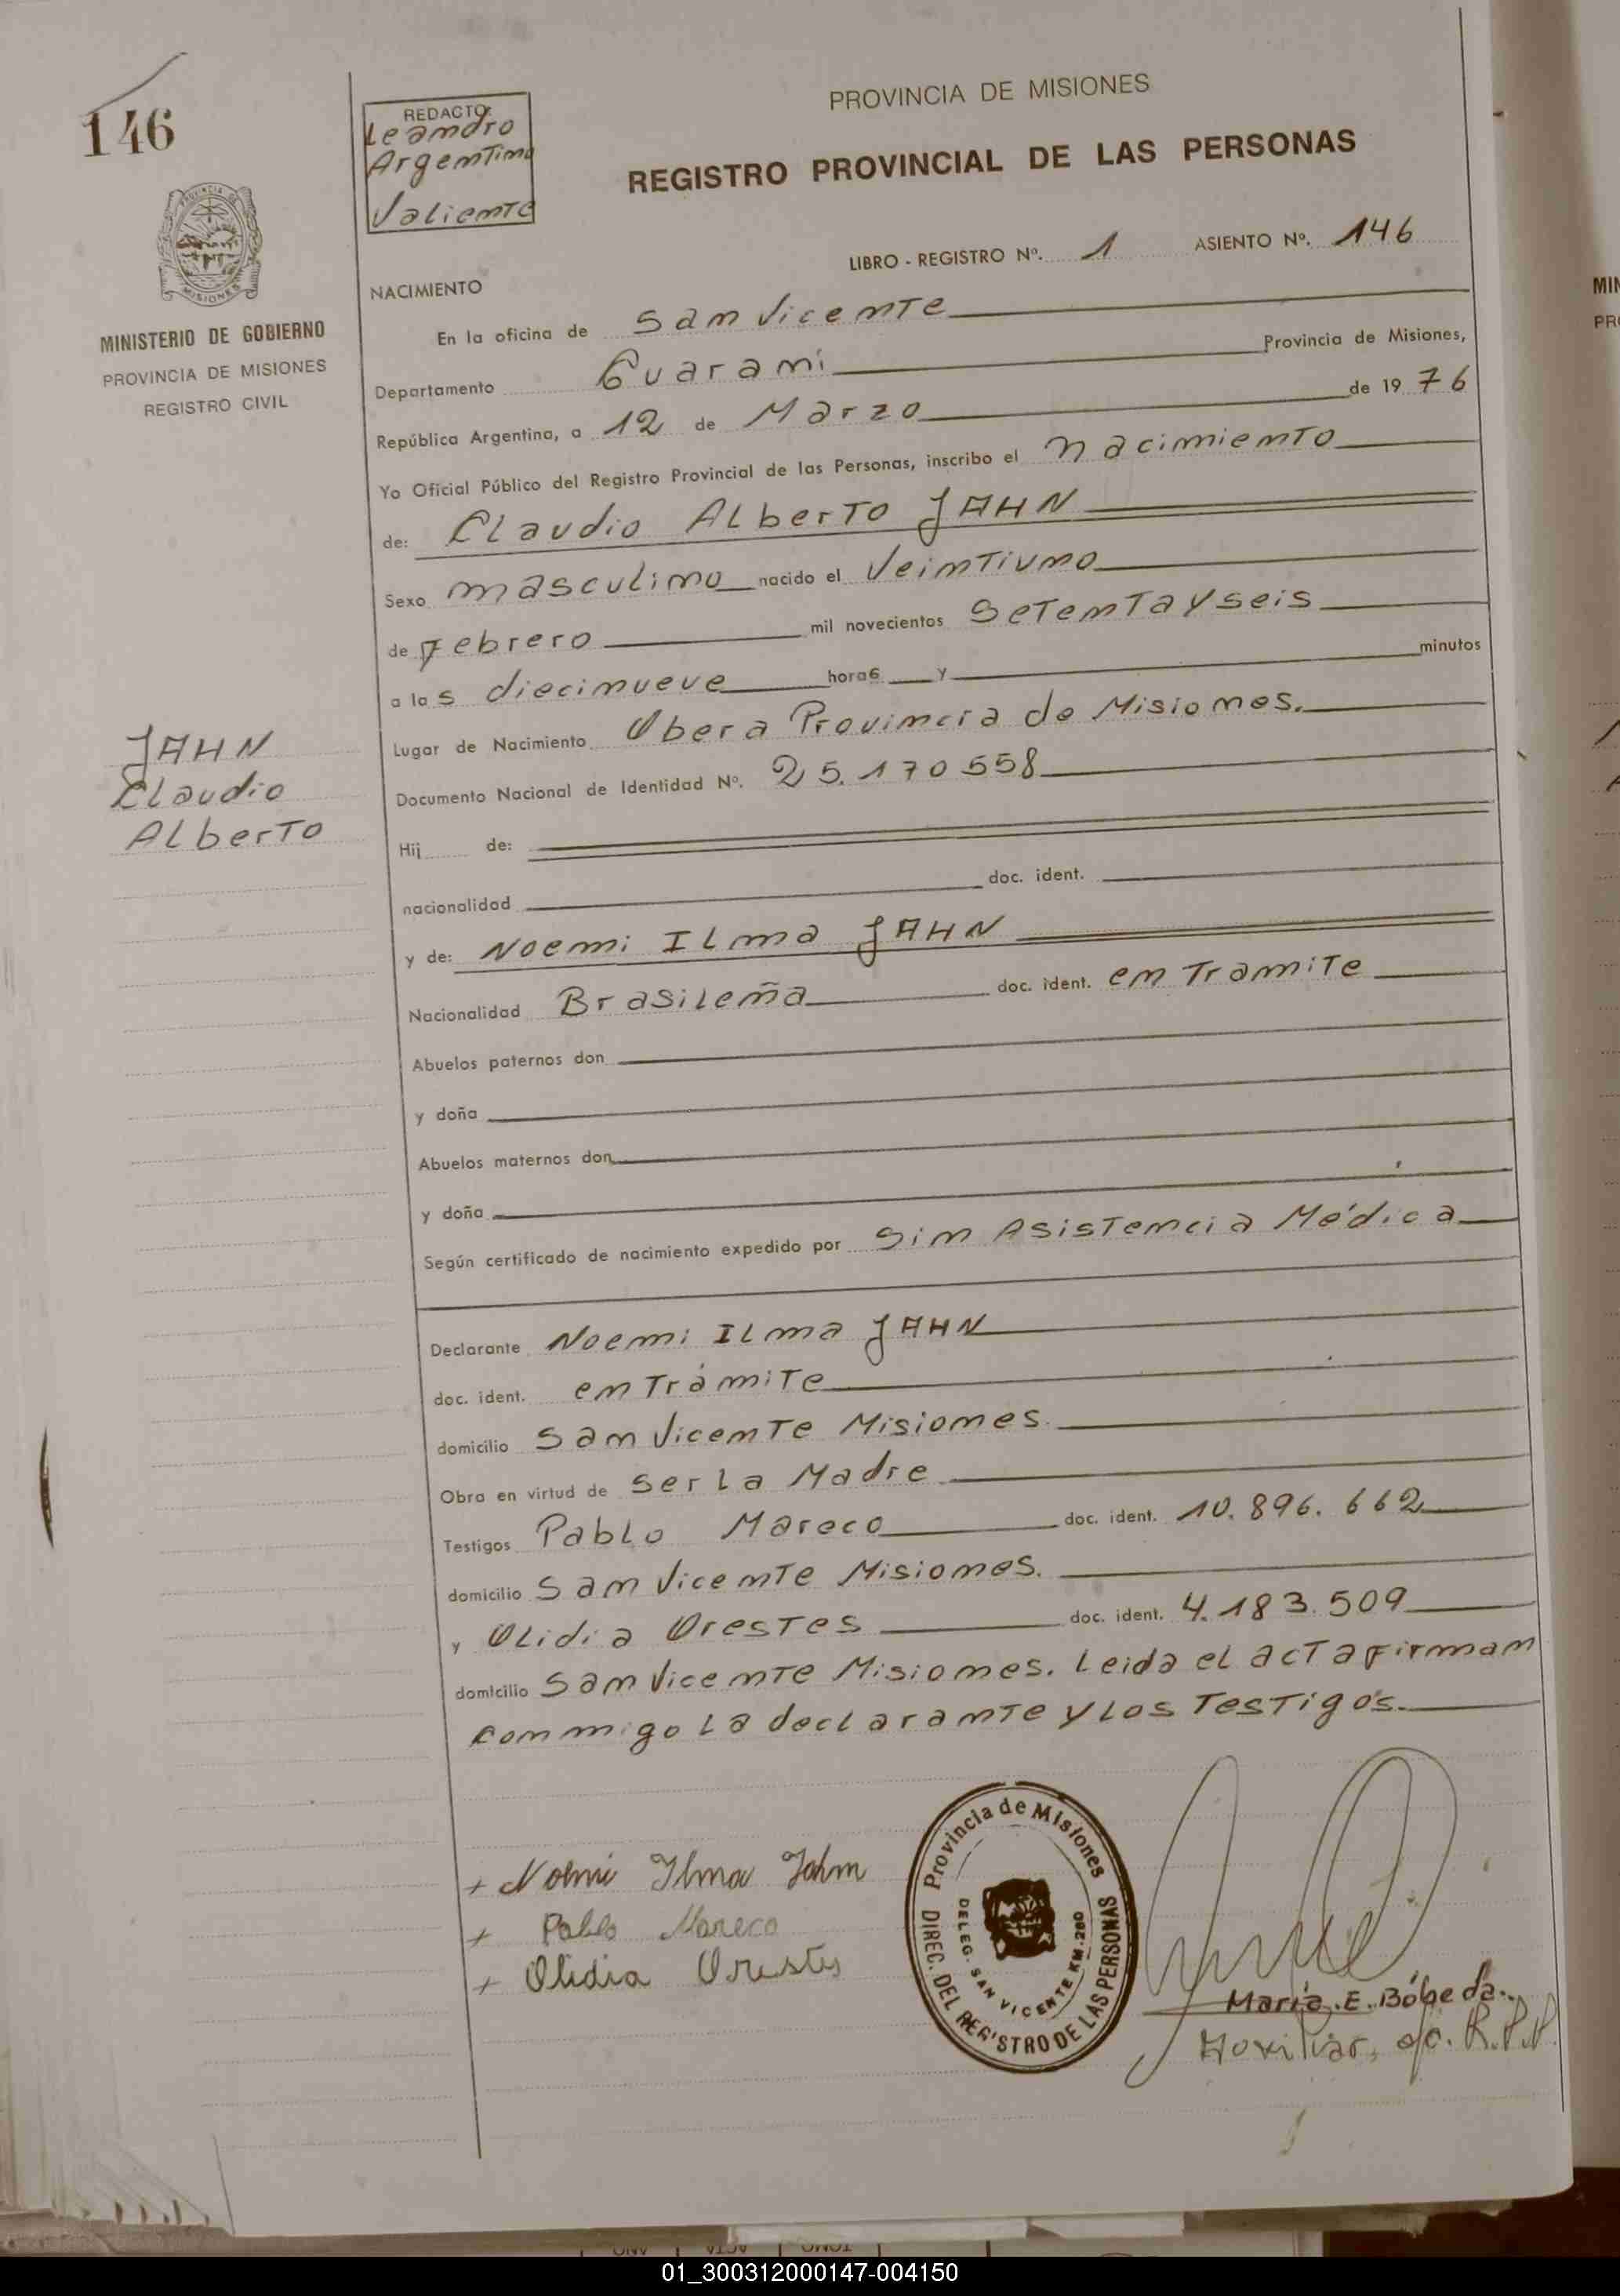 146
REDACTO
Leandro
Argentino
Valiente
PROVINCIA DE MISIONES
REGISTRO PROVINCIAL DE LAS PERSONAS
LIBRO - REGISTRO Nº. 1 ASIENTO Nº. 146
PROVINCIA DE
MISIONES
MINISTERIO DE GOBIERNO
PROVINCIA DE MISIONES
REGISTRO CIVIL
NACIMIENTO
En la oficina de San Vicente
Departamento Guarani Provincia de Misiones,
República Argentina, a 12 de Marzo de 1976
Yo Oficial Público del Registro Provincial de las Personas, inscribo el nacimiento
de: Claudio Alberto JAHN
Sexo masculino nacido el Veintiuno
de Febrero mil novecientos Setentayseis
a las diecinueve horas y minutos
Lugar de Nacimiento Obera Provincia de Misiones.
Documento Nacional de Identidad Nº. 25.170558
JAHN
Claudio
Alberto
Hij de:
nacionalidad doc. ident.
y de: Noemi Ilma JAHN
Nacionalidad Brasileña doc. ident. en Tramite
Abuelos paternos don
y doña
Abuelos maternos don
y doña
Según certificado de nacimiento expedido por Sin Asistencia Médica
Declarante Noemi Ilma JAHN
doc. ident. en Trámite
domicilio San Vicente Misiones.
Obra en virtud de Ser la Madre
Testigos Pablo Mareco doc. ident. 10.896.662
domicilio San Vicente Misiones.
y Olidia Orestes doc. ident. 4.183.509
domicilio San Vicente Misiones. Leida el acta firman
conmigo la declarante y los Testigos.
+ Noemi Ilma Jahn
+ Pablo Mareco
+ Olidia Orestes
Provincia de Misiones
DIREC. DEL REGISTRO DE LAS PERSONAS
DELEG. SAN VICENTE KM. 280
Maria E. Bóbeda
Auxiliar, a/c. R.P.P.
MIN
PRO
01_300312000147-004150